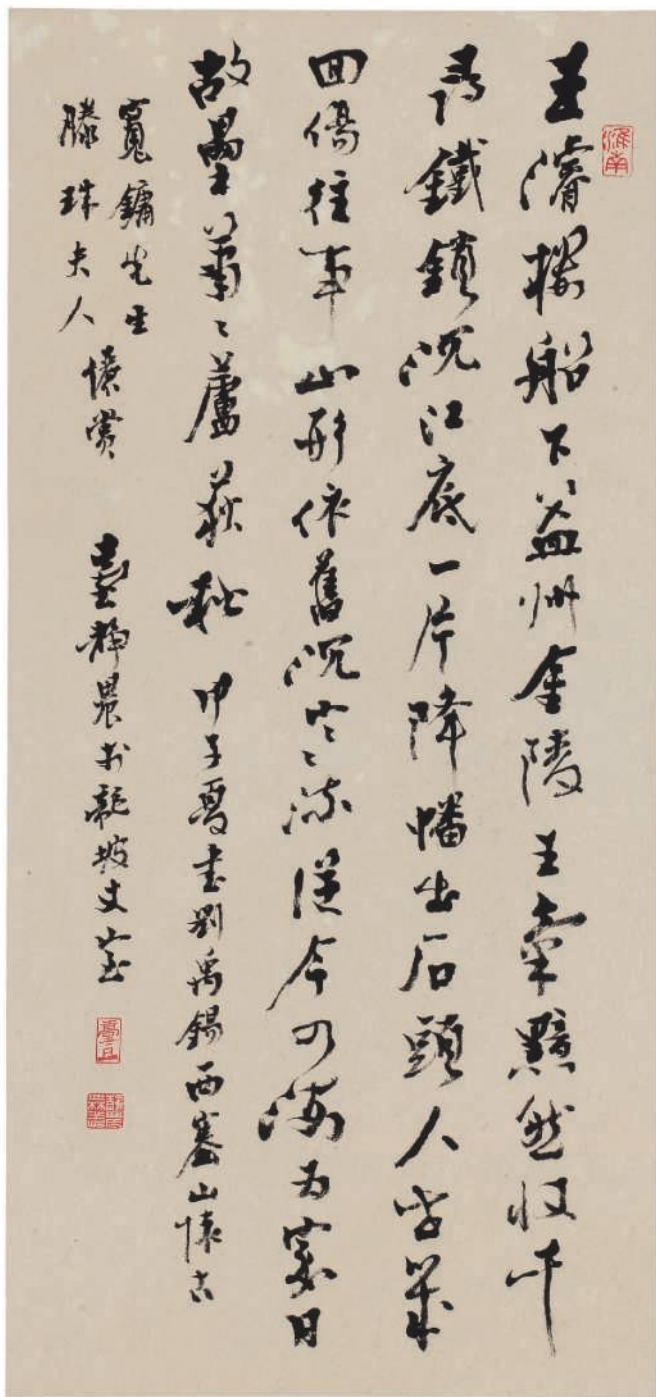 王濬樓船下益州金陵王氣黯然收千
尋鐵鎖沉江底一片降幡出石頭人世幾
回傷往事山形依舊枕寒流從今四海為家日
故壘蕭〻蘆荻秋 甲子夏書劉禹錫西塞山懷古
寬鏞先生
滕珠夫人 儷賞
臺靜農於龍坡丈室
淮南